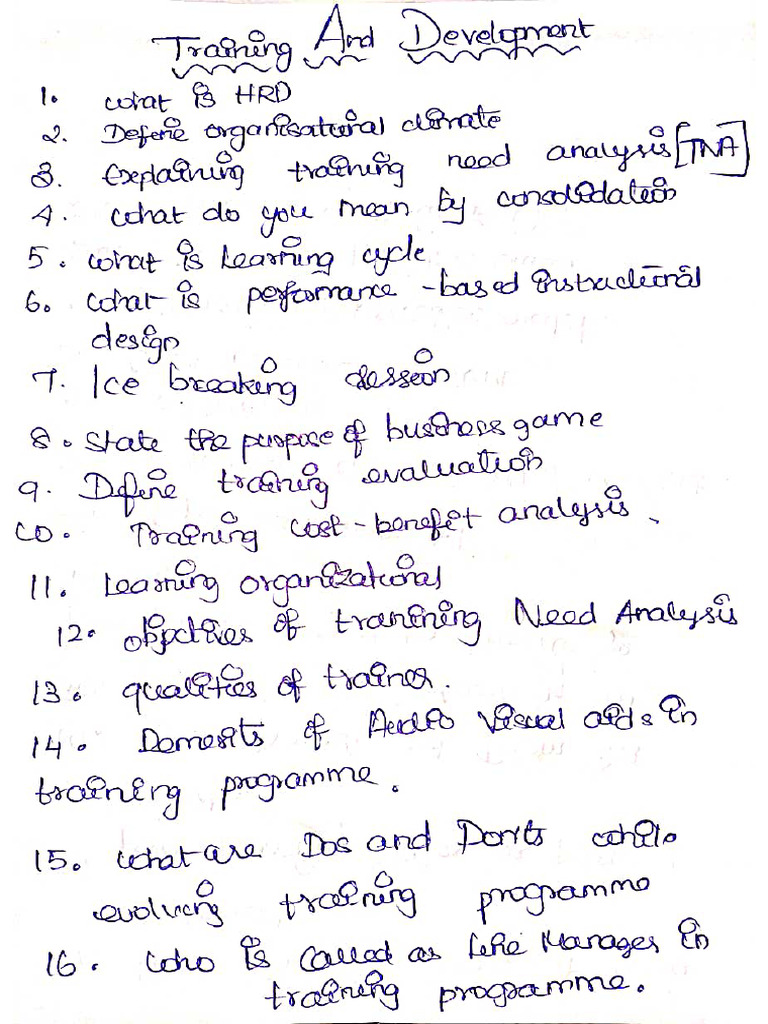 Training And Development
1. what is HRD
2. Define organisational climate
3. Explaining training need analysis [TNA]
4. what do you mean by consolidation
5. what is Learning cycle
6. what is performance-based instructional
design
7. Ice breaking session
8. State the purpose of business game
9. Define training evaluation
10. Training cost-benefit analysis.
11. Learning organizational
12. objectives of tranining Need Analysis
13. qualities of trainer.
14. Demerits of Audio Visual aids in
training programme.
15. what are Dos and Don'ts while
evolving training programme
16. who is called as Line Manager in
training programme.